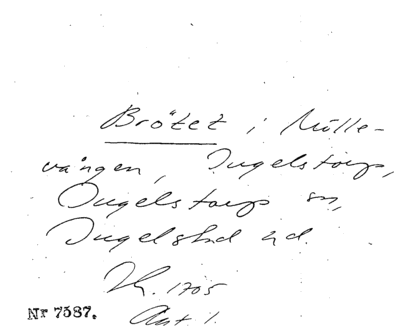 Brötet i Mölle-
vången, Ingelstorps,
Ingelstorps sn,
Ingelstad hd.
Kh. 1705
Akt 1.
Nr 7587.